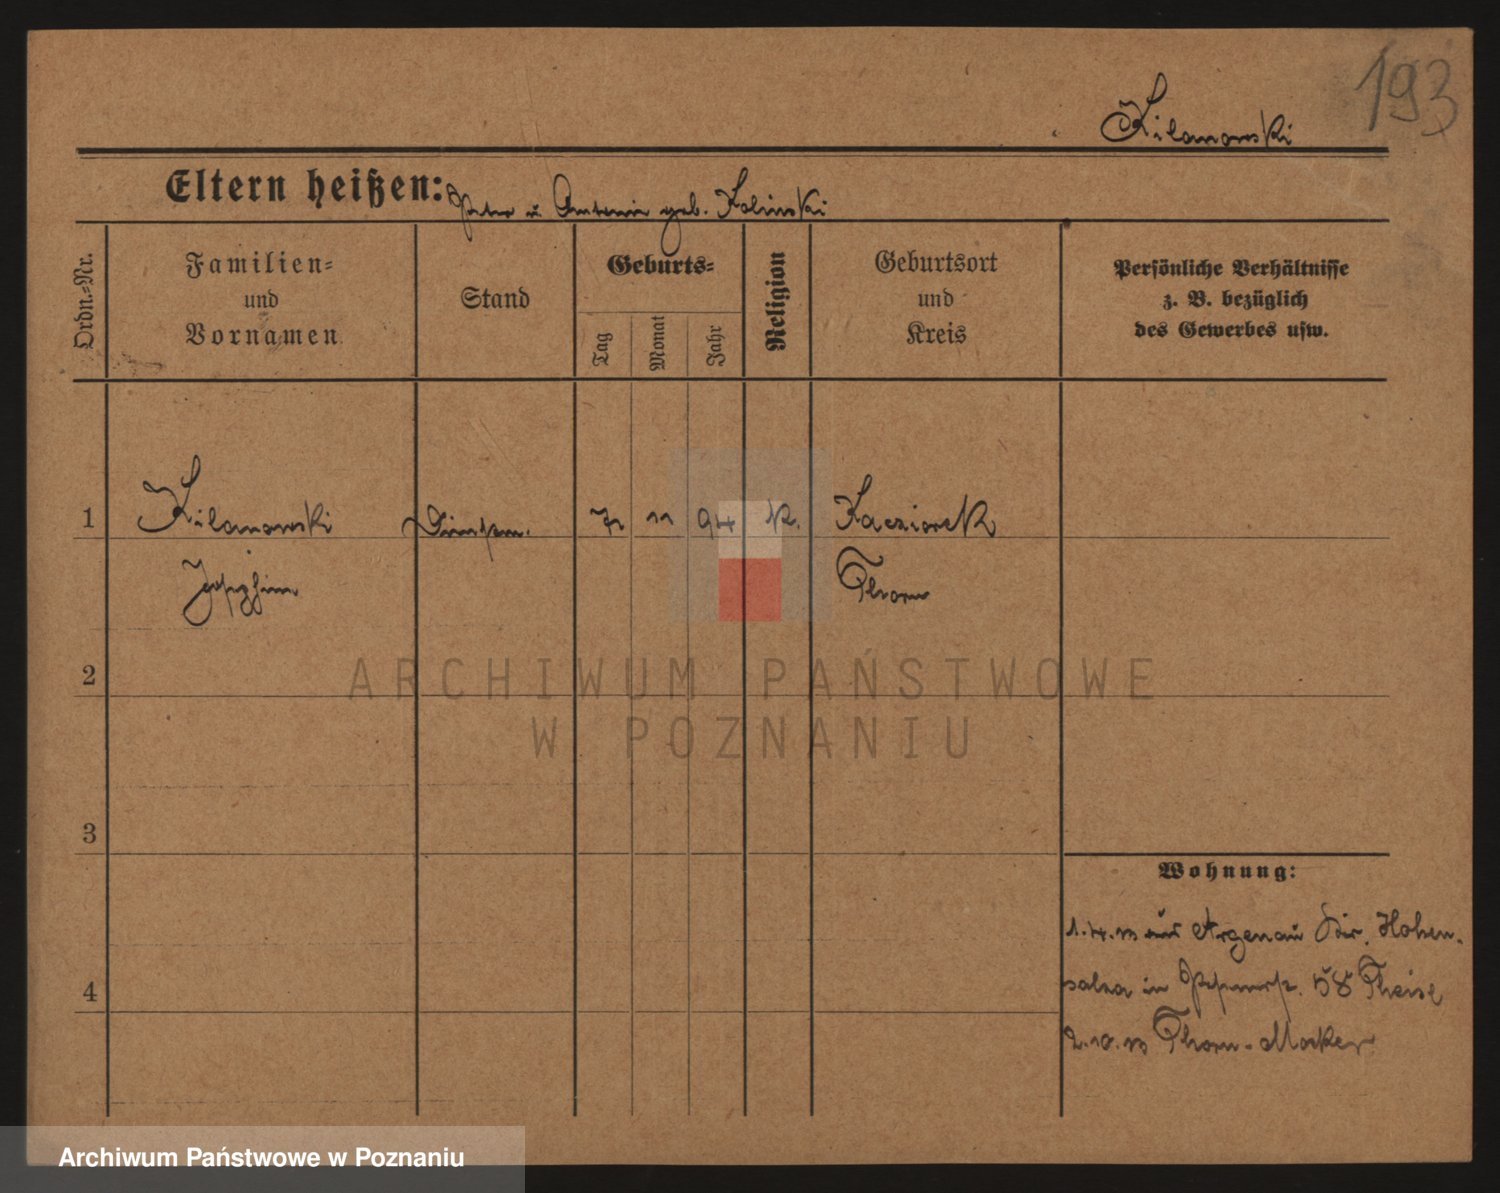 193
Kilanowski
Eltern heißen: Peter u. Antonie geb. Kolinski
Ordn.=Nr.
Familien=
und
Vornamen
Stand
Geburts=
Tag
Monat
Jahr
Religion
Geburtsort
und
Kreis
Persönliche Verhältnisse
z. B. bezüglich
des Gewerbes usw.
1 Kilanowski 7 11 94 K. Kacziorek
Josephine Thorn
2
ARCHIWUM PAŃSTWOWE
W POZNANIU
3
Wohnung:
1.4.13 aus Argenau Kr. Hohen-
salza in 58 Theise
4
2.10.13 Thorn-Mocker
Archiwum Państwowe w Poznaniu